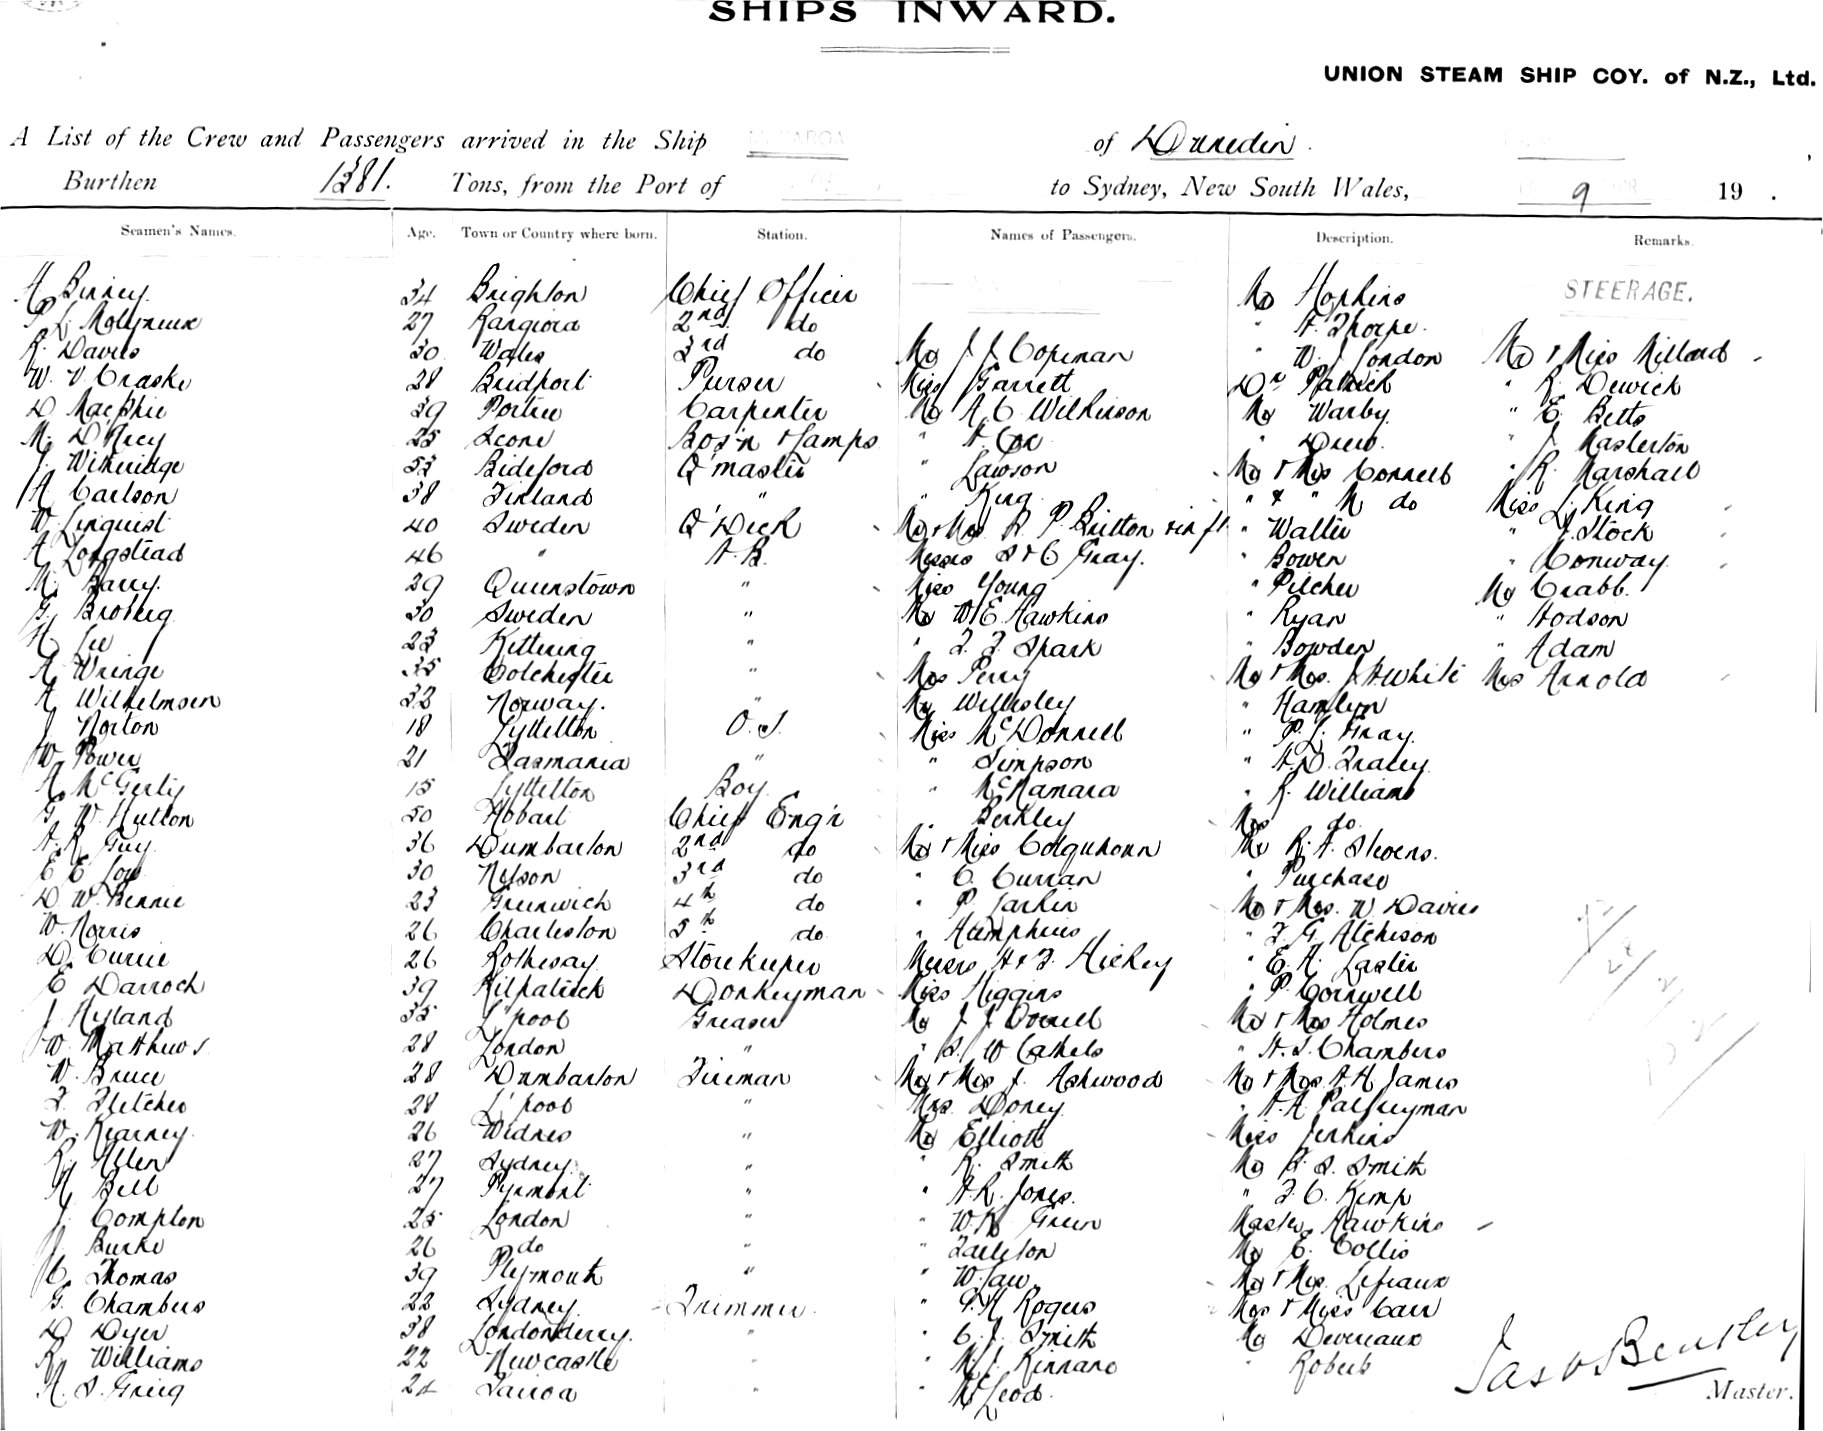 SHIPS INWARD.
UNION STEAM SHIP COY. of N.Z., Ltd.
A List of the Crew and Passengers arrived in the Ship of Dunedin.
Burthen 1381. Tons, from the Port of to Sydney, New South Wales, 9 19 .
Seamen's Names. Age. Town or Country where born. Station. Names of Passengers. Description. Remarks.
A Binney 34 Brighton Chief Officer Mr Hopkins STEERAGE.
P L Molyneux 27 Rangiora 2nd do " A. Thorpe.
R. Davies 30 Wales 3rd do Mr J J Copeman " W. J London Mr & Miss Millard
W. V Craske 28 Bridport Purser Miss Garrett Dr Patrick " R. Dewick
D MacPhie 39 Portree Carpenter Mr A C Wilkinson Mr Warby " E. Betts
M. D'Arcy 25 Scone Bos'n & Lamps " A. Cox " Drew. " J. Masterton
J. Witheridge 53 Bideford Q'master " Lawson Mr & Mrs Connell " R. Marshall
A Carlson 38 Finland " " King " & " M do Miss L. King
W. Linquist 40 Sweden Q'Deck Mr & Mrs R. P. Britton " Walter " J. Stock
A Longstead 46 " A.B. Messrs S & C Gray. " Bowen " Conway
M. Barry. 29 Queenstown " Miss Young " Pilcher Mr Crabb.
G. 30 Sweden " Mr W E Hawkins " Ryan " Hodson
H Lee 23 Kettering " " F. F. Spark " Bowden " Adam
A Wringe 35 Colchester " Mrs Perry Mr & Mrs. J. H. White Mrs Arnold
A Wilhelmsen 33 Norway. " Mr Wellesley " Hamlyn
J Norton 18 Lyttelton O.S. Miss McDonnell " P. L. Gray.
W. Power 21 Tasmania " " Simpson " A. D. Tracey
A McGerty 15 Lyttelton Boy " McNamara " R. Williams
G. W. Hutton 50 Hobart Chief Eng'r " Berkley Mrs do
A. R Guy. 36 Dumbarton 2nd do Mr & Miss Colquhoun Mr R. A. Stevens.
E E Low 30 Nelson 3rd do " C. Curran " Purchase
D. W. Bennie 23 Greenwich 4th do " P. Larkin Mr & Mrs. W Davies
W. Norris 26 Charleston 5th do " Humphries " F. G Atchison
D. Currie 26 Rothesay Storekeeper Messrs H & F. Hickey " E. A. Laster
E Darroch 39 Kilpatrick Donkeyman Miss Higgins " P. Cornwell
J Hyland 35 L'pool Greaser Mr J J Dowell Mr & Mrs Holmes
W. Matthews 28 London " " S. W Cathels " A. S. Chambers
W. Bruce 28 Dumbarton Fireman Mr & Mrs J. Ashwood Mr & Mrs. A. H James
F. Fletcher 28 L'pool " Mrs. Doney " A. A Palfreyman
W. Kearney 26 Widnes " Mr Elliott Miss Jenkins
R. Allen 27 Sydney. " " R. Smith Mr R. S. Smith
H. Bell 27 Pyrmont " " A. R. Jones. " F. C. Kemp
J. Compton 25 London " " W. H Green Master Hawkins
J Burke 26 do " " Tarleton Mr E. Collis
C. Thomas 39 Plymouth " " W. Law Mr & Mrs. Lefeaux
G. Chambers 22 Sydney. Trimmer. " G. H Rogers Mrs & Miss Carr
D Dyer 38 Londonderry. " " C. J. Smith Mr Devereaux
R. Williams 22 Newcastle " " M. J. Kinnane " Roberts
A. S. Greig 24 " " McLeod.
Jas Bentley
Master.